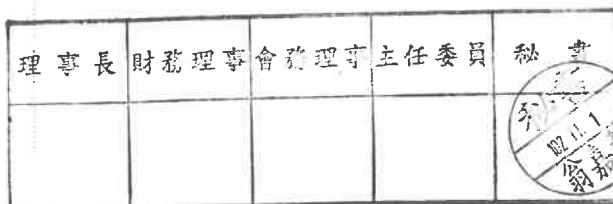 理事長 財務理事 會務理事 主任委員 秘書
102.11.1
翁嘉